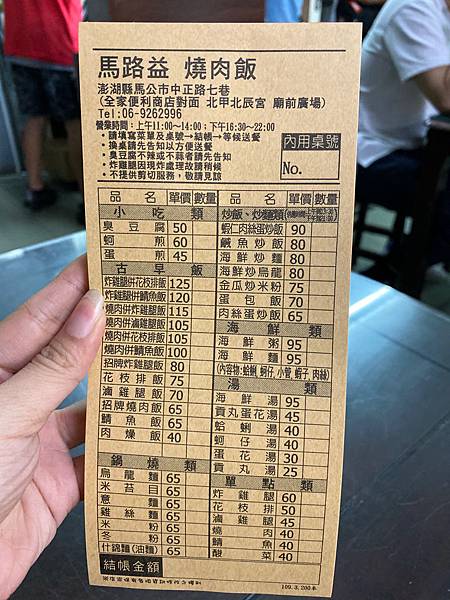 馬路益 燒肉飯
澎湖縣馬公市中正路七巷
(全家便利商店對面 北甲北辰宮 廟前廣場)
Tel:06-9262996
營業時間：上午11:00～14:00；下午16:30～22:00
・請填寫菜單及桌號→結帳→等候送餐
・換桌請先告知以方便送餐
・臭豆腐不辣或不蒜者請先告知
・炸雞腿因現炸處理故請稍候
・不提供剪切服務，敬請見諒
內用桌號
No.
品名 單價 數量
小吃類
臭豆腐 50
蚵煎 60
蛋煎 45
古早飯
炸雞腿併花枝排飯 125
炸雞腿併鯖魚飯 120
燒肉併炸雞腿飯 115
燒肉併滷雞腿飯 105
燒肉併花枝排飯 105
燒肉併鯖魚飯 100
招牌炸雞腿飯 80
花枝排飯 75
滷雞腿飯 70
招牌燒肉飯 65
鯖魚飯 65
肉燥飯 40
鍋燒類
烏龍麵 65
米苔目 65
意麵 65
雞絲麵 65
米粉 65
冬粉 65
什錦麵(油麵) 65
結帳金額
品名 單價 數量
炒飯、炒麵類
蝦仁肉絲蛋炒飯 90
鹹魚炒飯 80
海鮮炒麵 80
海鮮炒烏龍 80
金瓜炒米粉 75
蛋包飯 70
肉絲蛋炒飯 65
海鮮類
海鮮粥 95
海鮮麵 95
(內容物:蛤蜊、蚵仔、小管、蝦子、肉絲)
湯類
海鮮湯 95
貢丸蛋花湯 45
蛤蜊湯 40
蚵仔湯 40
蛋花湯 30
貢丸湯 25
單點類
炸雞腿 60
花枝排 50
滷雞腿 45
燒肉 40
鯖魚 40
酸菜 40
109.3.200本